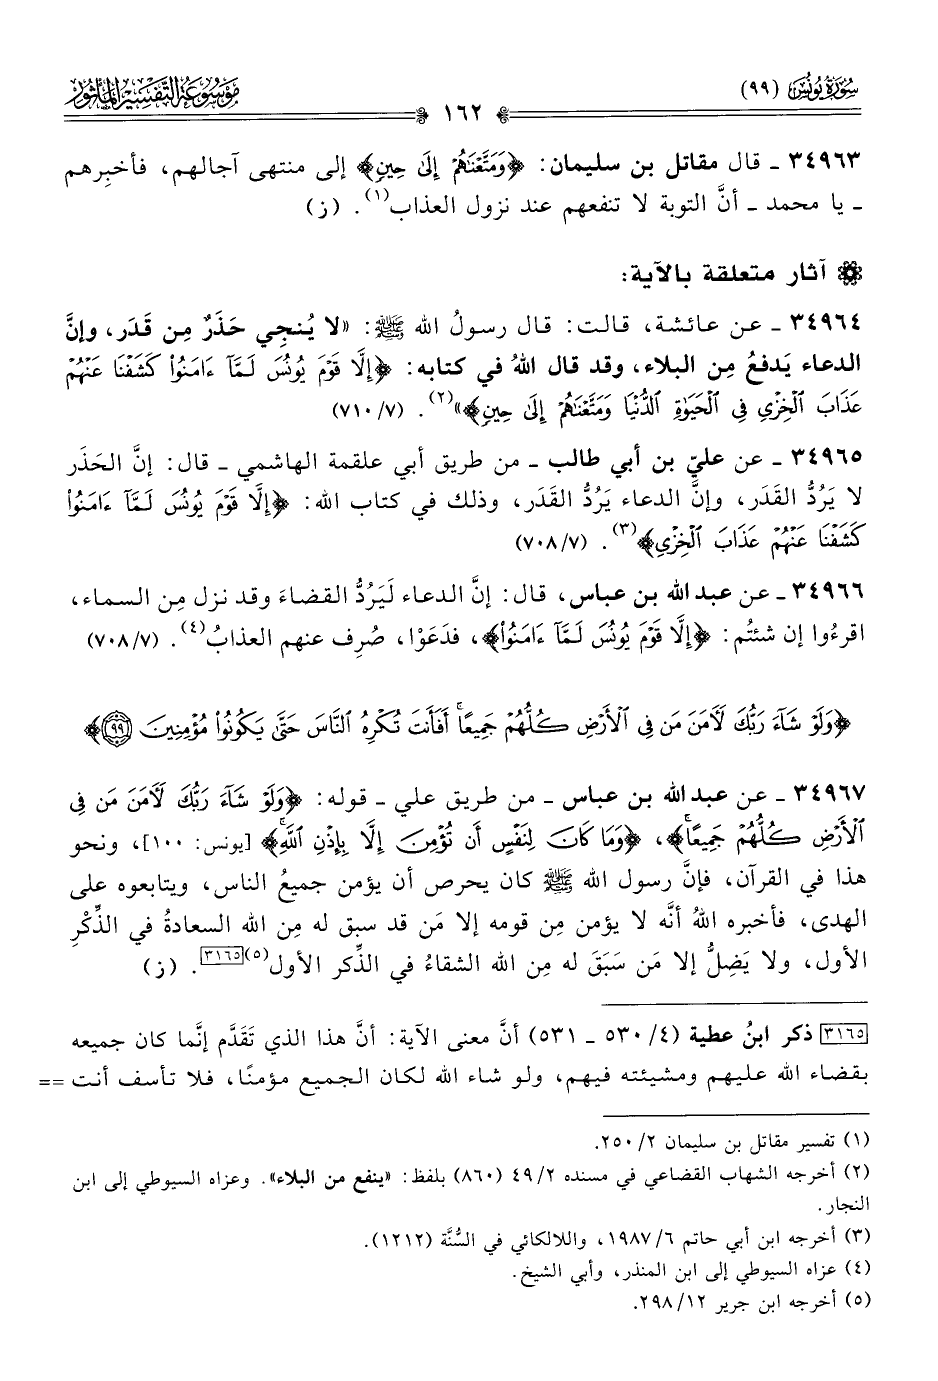 سُورَةُ يُونُسَ (٩٩)
١٦٢
مَوْسُوعَةُ التَّفْسِيرِ المَأْثُورِ
٣٤٩٦٣ ـ قال مقاتل بن سليمان: ﴿وَمَتَّعْنَاهُمْ إِلَىٰ حِينٍ﴾ إلى منتهى آجالهم، فأخبِرهم
ـ يا محمد ـ أنَّ التوبة لا تنفعهم عند نزول العذاب(١). (ز)
آثار متعلقة بالآية:
٣٤٩٦٤ ـ عن عائشة، قالت: قال رسولُ الله ﷺ: «لا يُنجِي حَذَرٌ مِن قَدَر، وإنَّ
الدعاء يَدفعُ مِن البلاء، وقد قال اللهُ في كتابه: ﴿إِلَّا قَوْمَ يُونُسَ لَمَّآ ءَامَنُواْ كَشَفْنَا عَنْهُمْ
عَذَابَ ٱلْخِزْيِ فِي ٱلْحَيَوٰةِ ٱلدُّنْيَا وَمَتَّعْنَاهُمْ إِلَىٰ حِينٍ﴾»(٢). (٧/ ٧١٠)
٣٤٩٦٥ ـ عن عليّ بن أبي طالب ـ من طريق أبي علقمة الهاشمي ـ قال: إنَّ الحَذَر
لا يَرُدُّ القَدَر، وإنَّ الدعاء يَرُدُّ القَدَر، وذلك في كتاب الله: ﴿إِلَّا قَوْمَ يُونُسَ لَمَّآ ءَامَنُواْ
كَشَفْنَا عَنْهُمْ عَذَابَ ٱلْخِزْيِ﴾(٣). (٧/ ٧٠٨)
٣٤٩٦٦ ـ عن عبد الله بن عباس، قال: إنَّ الدعاء لَيَرُدُّ القضاءَ وقد نزل مِن السماء،
اقرءُوا إن شئتُم: ﴿إِلَّا قَوْمَ يُونُسَ لَمَّآ ءَامَنُواْ﴾، فدَعَوْا، صُرِف عنهم العذابُ(٤). (٧/ ٧٠٨)
﴿وَلَوْ شَآءَ رَبُّكَ لَأٓمَنَ مَن فِي ٱلْأَرْضِ كُلُّهُمْ جَمِيعًا ۚ أَفَأَنتَ تُكْرِهُ ٱلنَّاسَ حَتَّىٰ يَكُونُواْ مُؤْمِنِينَ ٩٩﴾
٣٤٩٦٧ ـ عن عبد الله بن عباس ـ من طريق علي ـ قوله: ﴿وَلَوْ شَآءَ رَبُّكَ لَأٓمَنَ مَن فِي
ٱلْأَرْضِ كُلُّهُمْ جَمِيعًا ۚ﴾، ﴿وَمَا كَانَ لِنَفْسٍ أَن تُؤْمِنَ إِلَّا بِإِذْنِ ٱللَّهِ ۚ﴾ [يونس: ١٠٠]، ونحو
هذا في القرآن، فإنَّ رسول الله ﷺ كان يحرص أن يؤمن جميعُ الناس، ويتابعوه على
الهدى، فأخبره اللهُ أنَّه لا يؤمن مِن قومه إلا مَن قد سبق له مِن الله السعادةُ في الذِّكْرِ
الأول، ولا يَضِلُّ إلا مَن سَبَقَ له مِن الله الشقاءُ في الذِّكر الأول(٥)[٣١٦٥]. (ز)
[٣١٦٥] ذكر ابنُ عطية (٤/ ٥٣٠ ـ ٥٣١) أنَّ معنى الآية: أنَّ هذا الذي تَقَدَّم إنَّما كان جميعه
بقضاء الله عليهم ومشيئته فيهم، ولو شاء الله لكان الجميع مؤمنًا، فلا تأسف أنت ==
(١) تفسير مقاتل بن سليمان ٢/ ٢٥٠.
(٢) أخرجه الشهاب القضاعي في مسنده ٢/ ٤٩ (٨٦٠) بلفظ: «ينفع من البلاء». وعزاه السيوطي إلى ابن
النجار.
(٣) أخرجه ابن أبي حاتم ٦/ ١٩٨٧، واللالكائي في السُّنَّة (١٢١٢).
(٤) عزاه السيوطي إلى ابن المنذر، وأبي الشيخ.
(٥) أخرجه ابن جرير ١٢/ ٢٩٨.